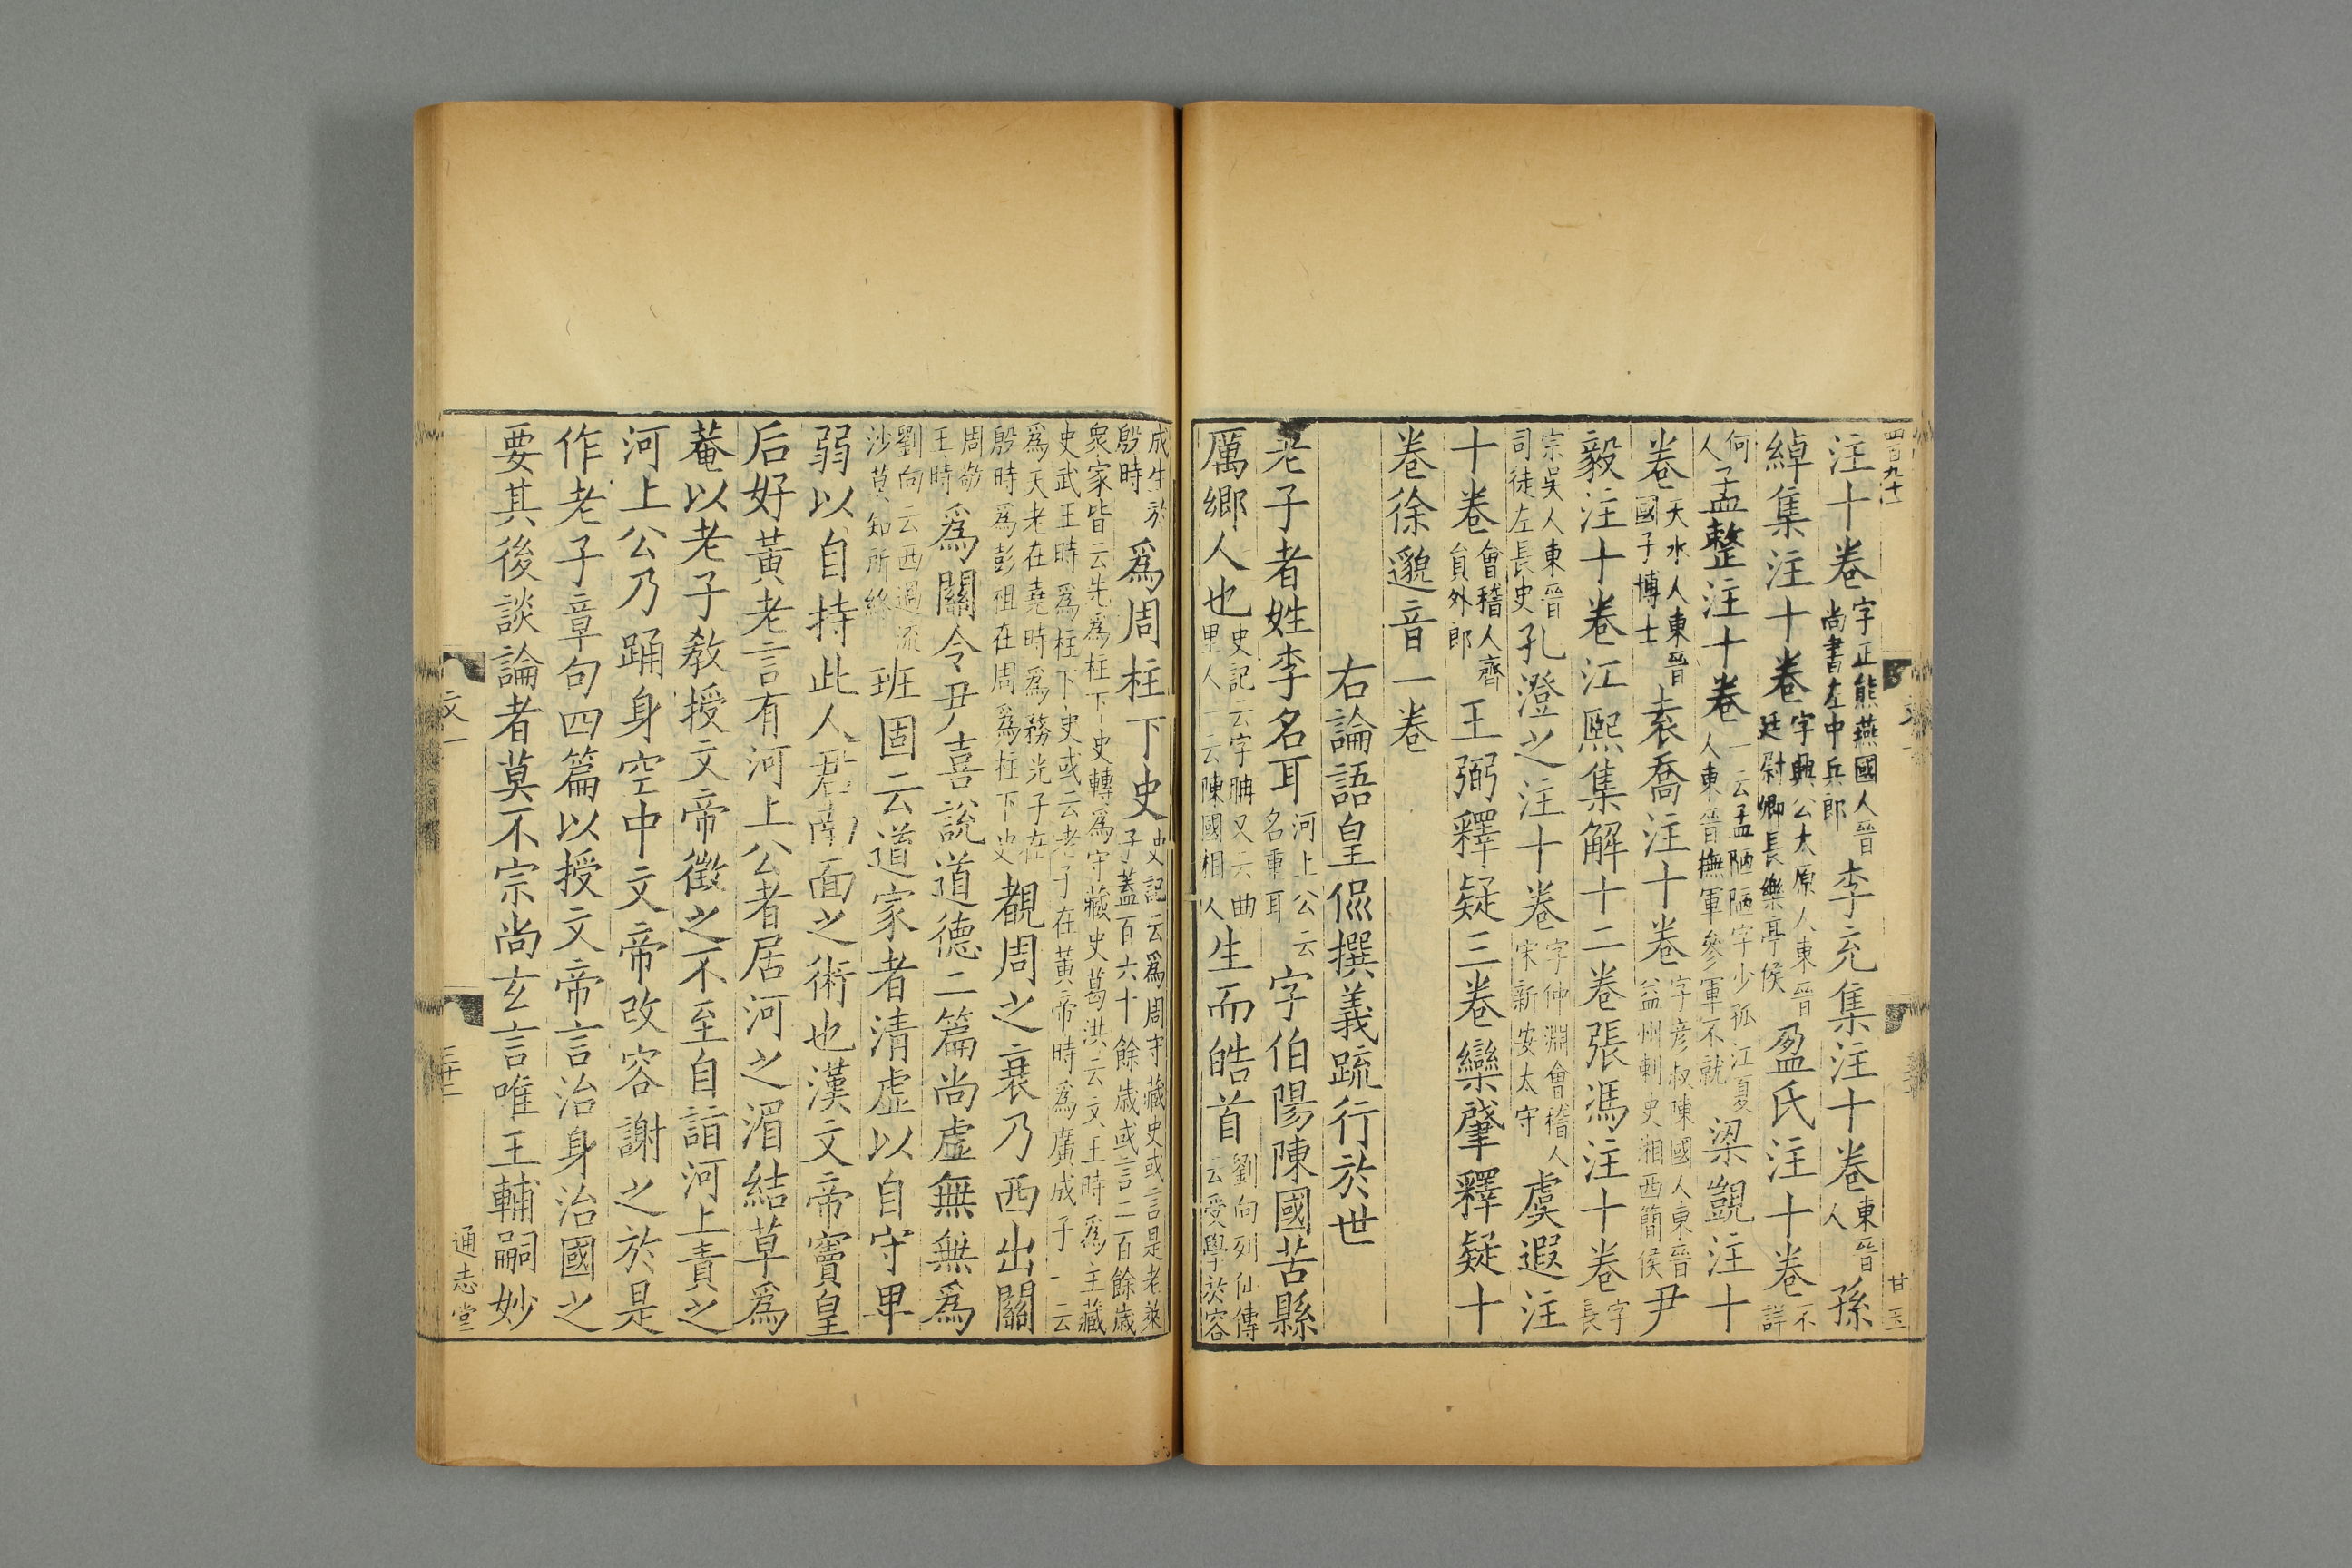 四百九十一
甘玉
注十卷字正熊燕國人晉尚書左中兵郎李充集注十卷東晉人孫
綽集注十卷字興公太原人東晉廷尉卿長樂亭侯盈氏注十卷不詳
何人孟整注十卷一云孟陋陋字少孤江夏人東晉撫軍參軍不就梁覬注十
卷天水人東晉國子博士袁喬注十卷字彦叔陳國人東晉益州刺史湘西簡侯尹
毅注十卷江熙集解十二卷張馮注十卷字長
宗吳人東晉司徒左長史孔澄之注十卷字仲淵會稽人宋新安太守虞遐注
十卷會稽人齊貟外郎王弼釋疑三卷欒肇釋疑十
卷徐邈音一卷
右論語皇侃撰義疏行於世
老子者姓李名耳河上公云名重耳字伯陽陳國苦縣
厲鄉人也史記云字聃又云曲里人一云陳國相人生而皓首劉向列仙傳云受學於容
成生於殷時爲周柱下史史記云爲周守藏史或言是老萊子蓋百六十餘歲或言二百餘歲
衆家皆云先爲柱下史轉爲守藏史葛洪云文王時爲主藏史武王時爲柱下史或云老子在黃帝時爲廣成子一云
爲天老在堯時爲務光子在殷時爲彭祖在周爲柱下史覩周之衰乃西出關
周敬王時爲關令尹喜說道德二篇尚虚無無爲
劉向云西過流沙莫知所終班固云道家者清虚以自守卑
弱以自持此人君南面之術也漢文帝竇皇
后好黃老言有河上公者居河之湄結草爲
菴以老子教授文帝徵之不至自詣河上責之
河上公乃踊身空中文帝改容謝之於是
作老子章句四篇以授文帝言治身治國之
要其後談論者莫不宗尚玄言唯王輔嗣妙
文一
三十二
通志堂